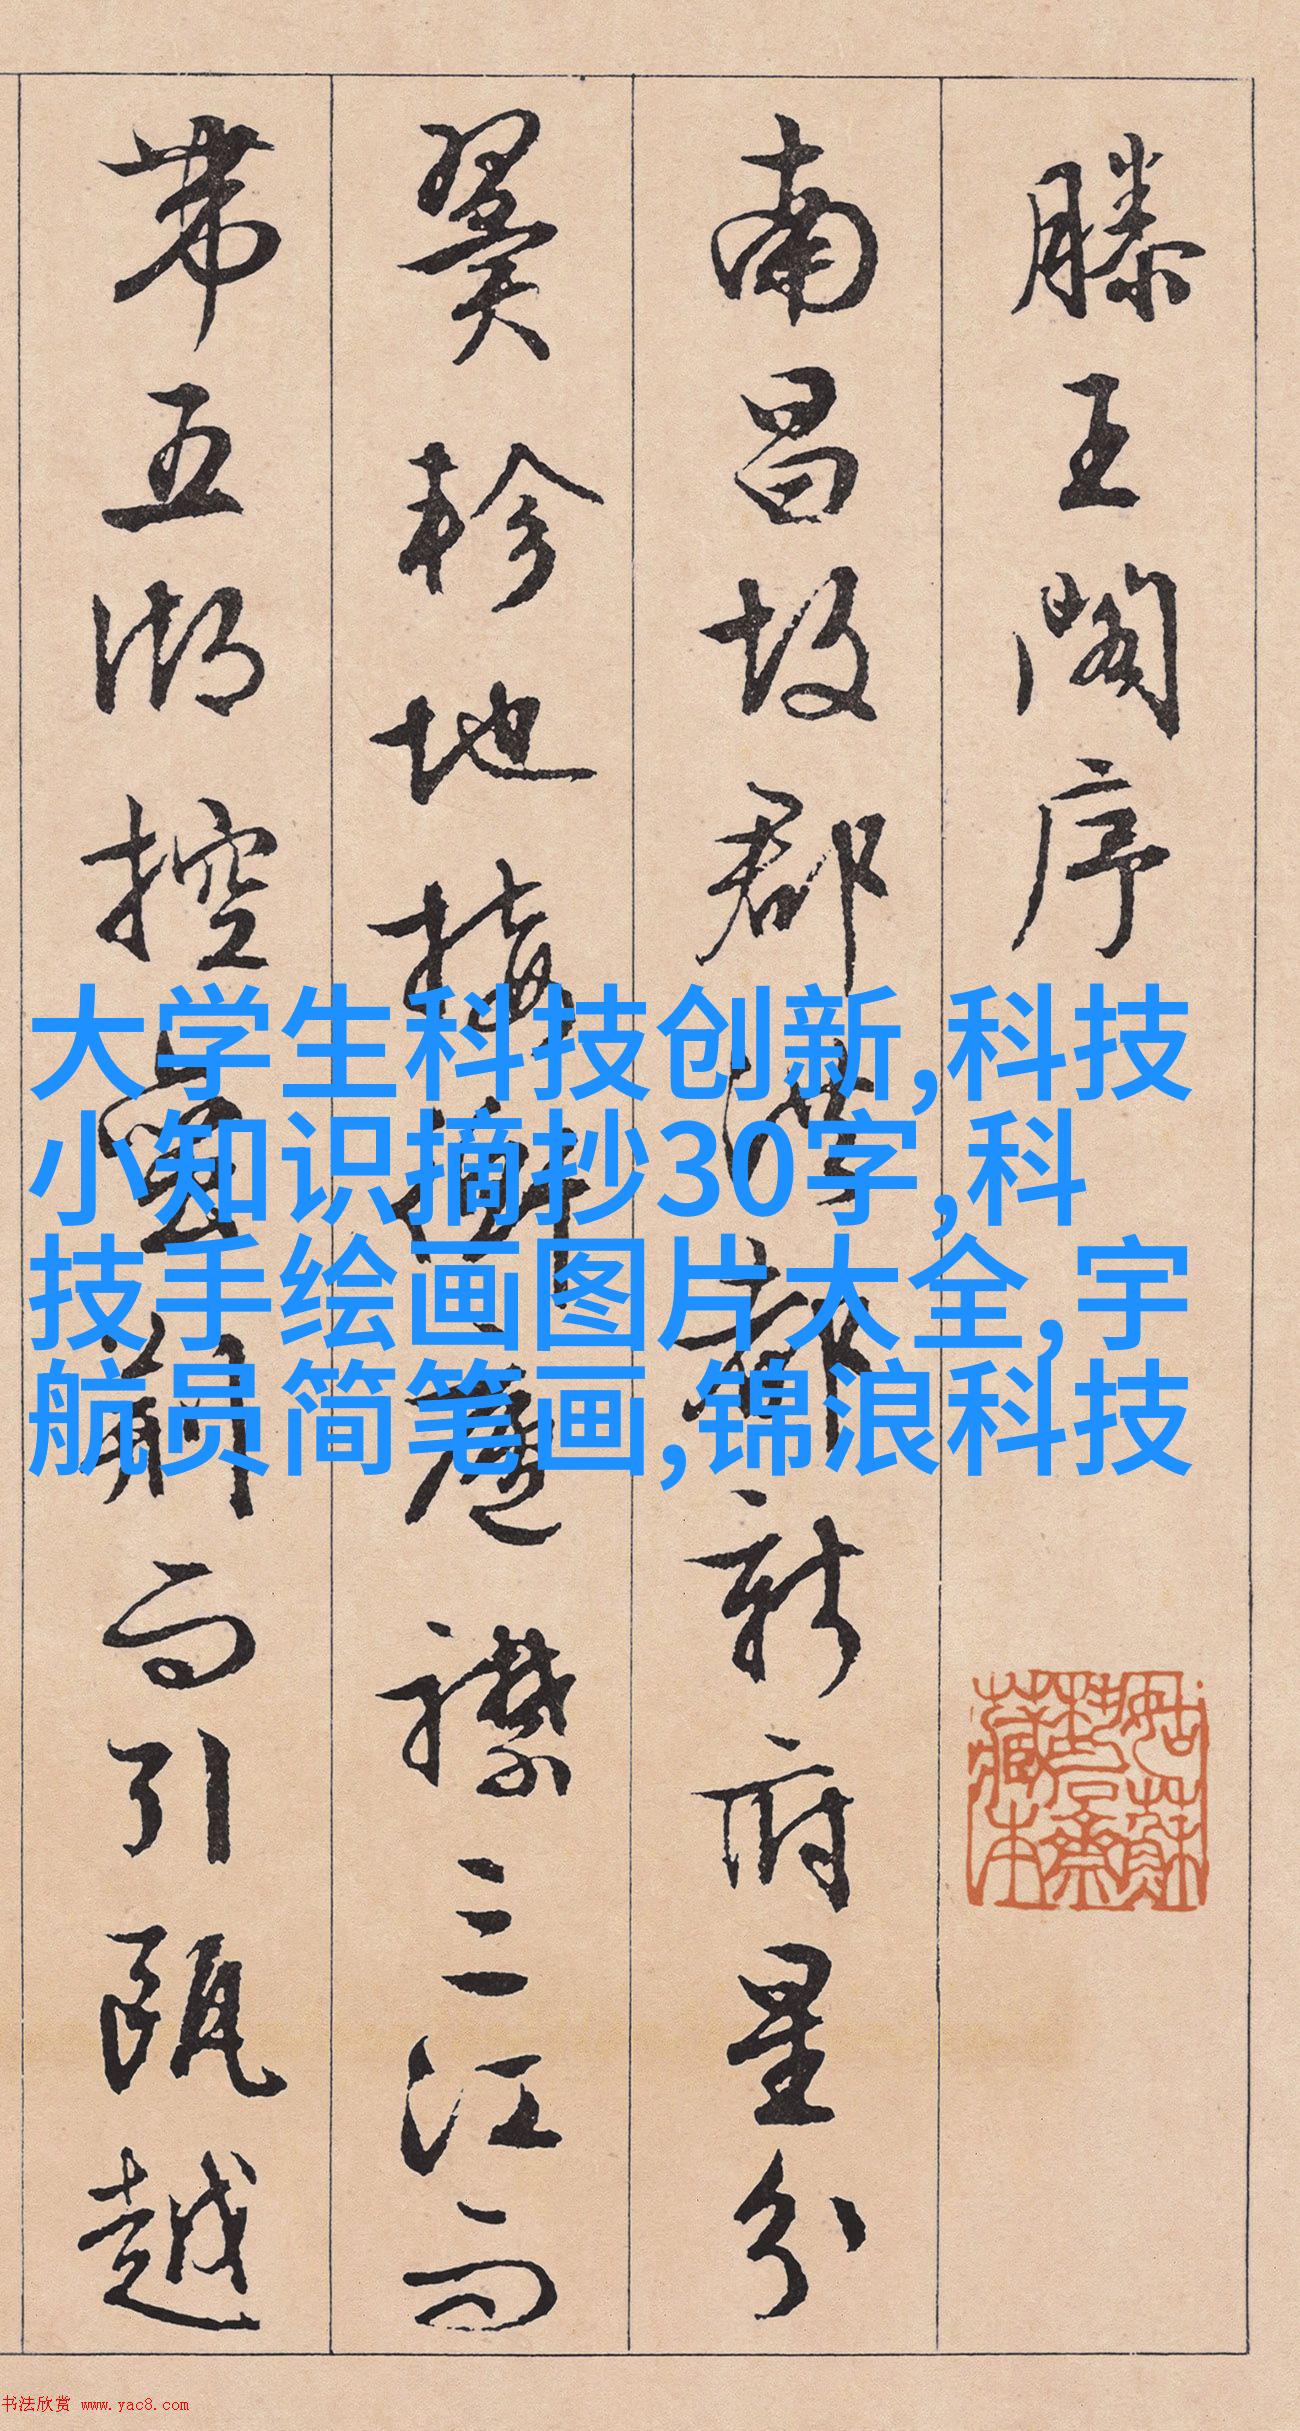 滕王閣序
南昌故郡洪都新府星分
翼軫地接衡廬襟三江而
帶五湖控蠻荊而引甌越
大学生科技创新,科技
小知识摘抄30字,科
技手绘画图片大全,宇
航员简笔画,锦浪科技
姑蘇
藏本
书法欣赏 www.yac8.com